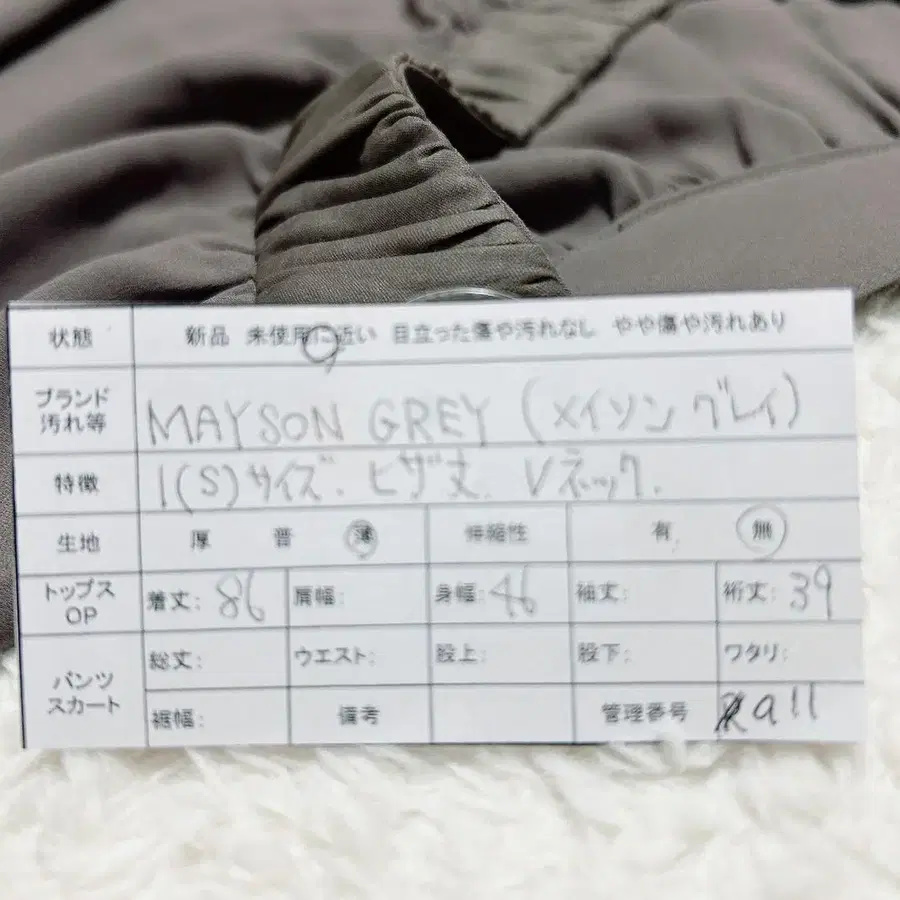 状態 新品 未使用に近い 目立った傷や汚れなし やや傷や汚れあり
ブランド
汚れ等
MAYSON GREY (メイソングレイ)
特徴 1(S)サイズ. ヒザ丈. Vネック.
生地 厚 普 薄 伸縮性 有 無
トップス
OP
着丈: 86 肩幅: 身幅: 46 袖丈: 裄丈: 39
パンツ
スカート
総丈: ウエスト: 股上: 股下: ワタリ:
裾幅: 備考 管理番号 a11